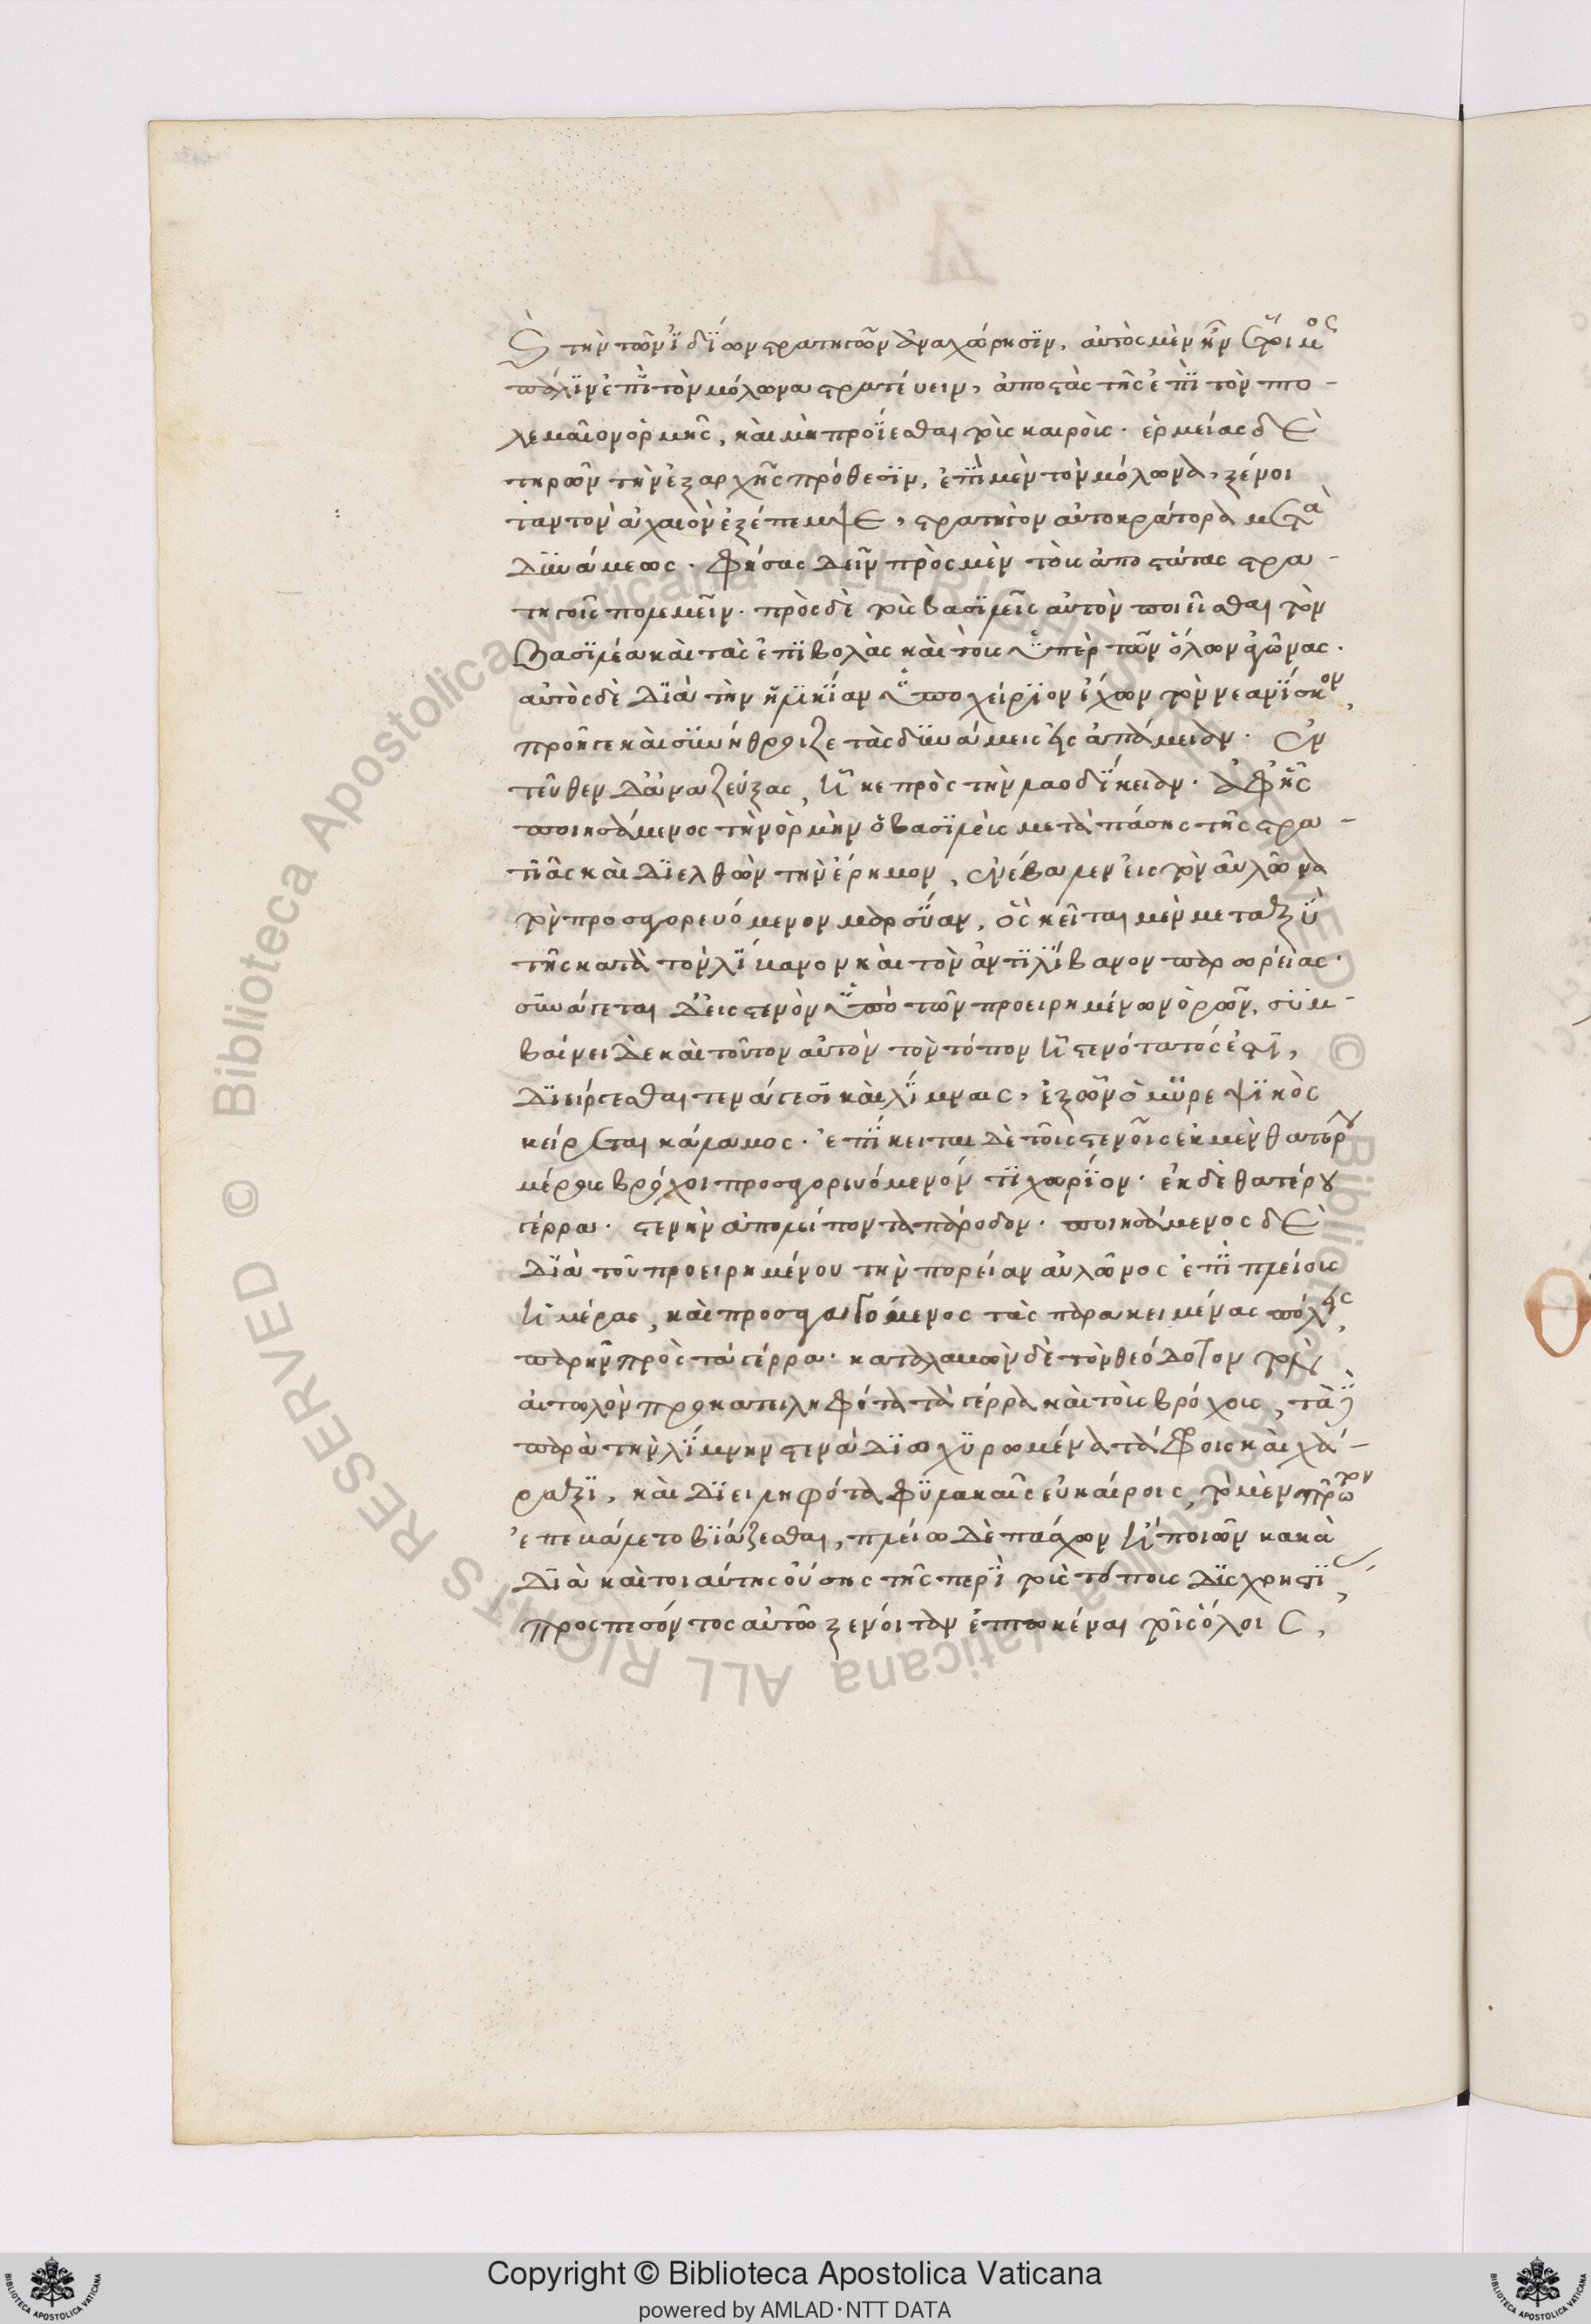 καὶ τὴν τῶν ἰδίων στρατηγῶν ἀναχώρησιν, αὐτὸς μὲν ἦν ἕτοιμος
πάλιν ἐπὶ τὸν μόλωνα στρατεύειν, ἀποστὰς τῆς ἐπὶ τὸν πτο-
λεμαῖον ὁρμῆς, καὶ μὴ προΐεσθαι τοὺς καιροὺς. ἑρμείας δὲ
τηρῶν τὴν ἐξαρχῆς πρόθεσιν, ἐπὶ μὲν τὸν μόλωνα, ξένοι
ταν τὸν ἀχαιὸν ἐξέπεμψε, στρατηγὸν αὐτοκράτορα μετὰ
δυνάμεως. φήσας δεῖν πρὸς μὲν τοὺς ἀποστάτας στρα-
τηγοῖς πολεμεῖν. πρὸς δὲ τοὺς βασιλεῖς αὐτὸν ποιεῖσθαι τὸν
βασιλέα καὶ τὰς ἐπιβολὰς καὶ τοὺς ὑπὲρ τῶν ὅλων ἀγῶνας.
αὐτὸς δὲ διὰ τὴν ἡλικίαν ὑποχείριον ἔχων τὸν νεανίσκον,
προῆγε καὶ συνήθροιζε τὰς δυνάμεις εἰς ἀπάμειαν. ἐν
τεῦθεν δ' ἀναζεύξας, ἧκε πρὸς τὴν λαοδίκειαν. ἀφ' ἧς
ποιησάμενος τὴν ὁρμὴν ὁ βασιλεὺς μετὰ πάσης τῆς στρα-
τιᾶς καὶ διελθὼν τὴν ἔρημον, ἐνέβαλεν εἰς τὸν αὐλῶνα
τὸν προσαγορευόμενον μαρσύαν, ὃς κεῖται μὲν μεταξὺ
τῆς κατὰ τὸν λίβανον καὶ τὸν ἀντιλίβανον παρωρείας.
συνάγεται δ' εἰς στενὸν ὑπὸ τῶν προειρημένων ὀρῶν, συμ-
βαίνει δὲ καὶ τοῦτον αὐτὸν τὸν τόπον ἧ στενότατός ἐστι,
διείργεσθαι τενάγεσι καὶ λίμναις, ἐξ ὧν ὁ μυρεψικὸς
κείρεται κάλαμος. ἐπίκειται δὲ τοῖς στενοῖς ἐκ μὲν θατέρου
μέρους βρόχοι προσαγορευόμενόν τι χωρίον. ἐκ δὲ θατέρου
γέρρα. στενὴν ἀπολείποντα πάροδον. ποιησάμενος δὲ
διὰ τοῦ προειρημένου τὴν πορείαν αὐλῶνος ἐπὶ πλείους
ἡμέρας, καὶ προσαγαγόμενος τὰς παρακειμένας πόλεις,
παρῆν πρὸς τὰ γέρρα. καταλαβὼν δὲ τὸν θεόδοτον τὸν
αἰτωλὸν προκατειληφότα τὰ γέρρα καὶ τοὺς βρόχους, τὰ δὲ
παρὰ τὴν λίμνην στενὰ διωχυρωμένα τάφροις καὶ χά-
ραξι, καὶ διειληφότα φυλακαῖς εὐκαίροις, τὸ μὲν πρῶτον
ἐπεβάλετο βιάζεσθαι, πλείω δὲ πάσχων ἢ ποιῶν κακὰ
διὰ καὶ τοιαύτης οὔσης τῆς περὶ τοὺς τόπους δυσχρηστίας,
προσπεσόντος αὐτῷ ξενοίταν ἐπτωκέναι τοῖς ὅλοις,